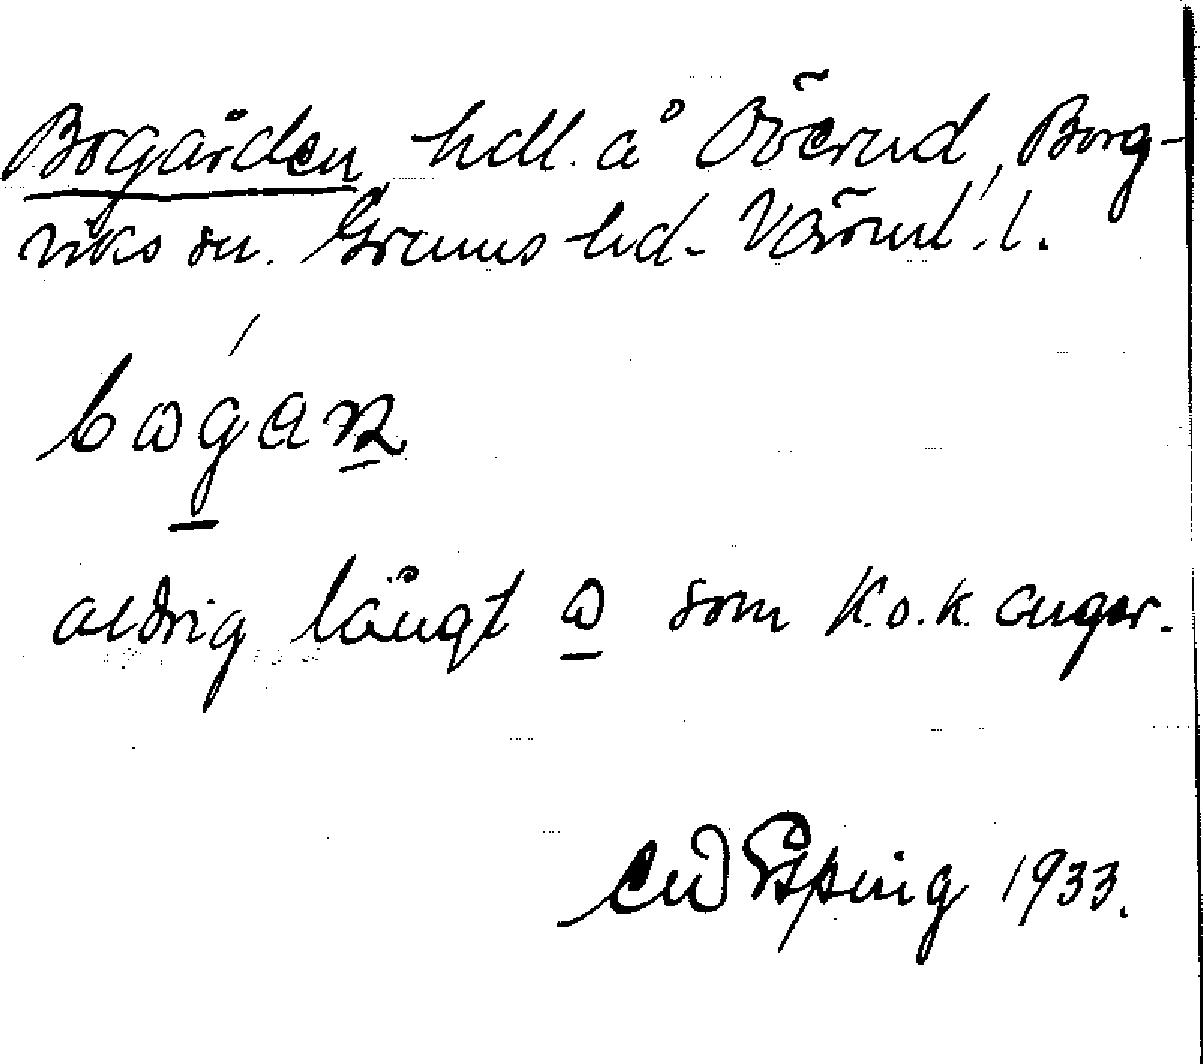 Bogården hdl. å Överud, Borg-
viks sn. Grums hd. Värml. l.
bogaɳ
aldrig långt ɷ som K.o.k. anger.
1933.